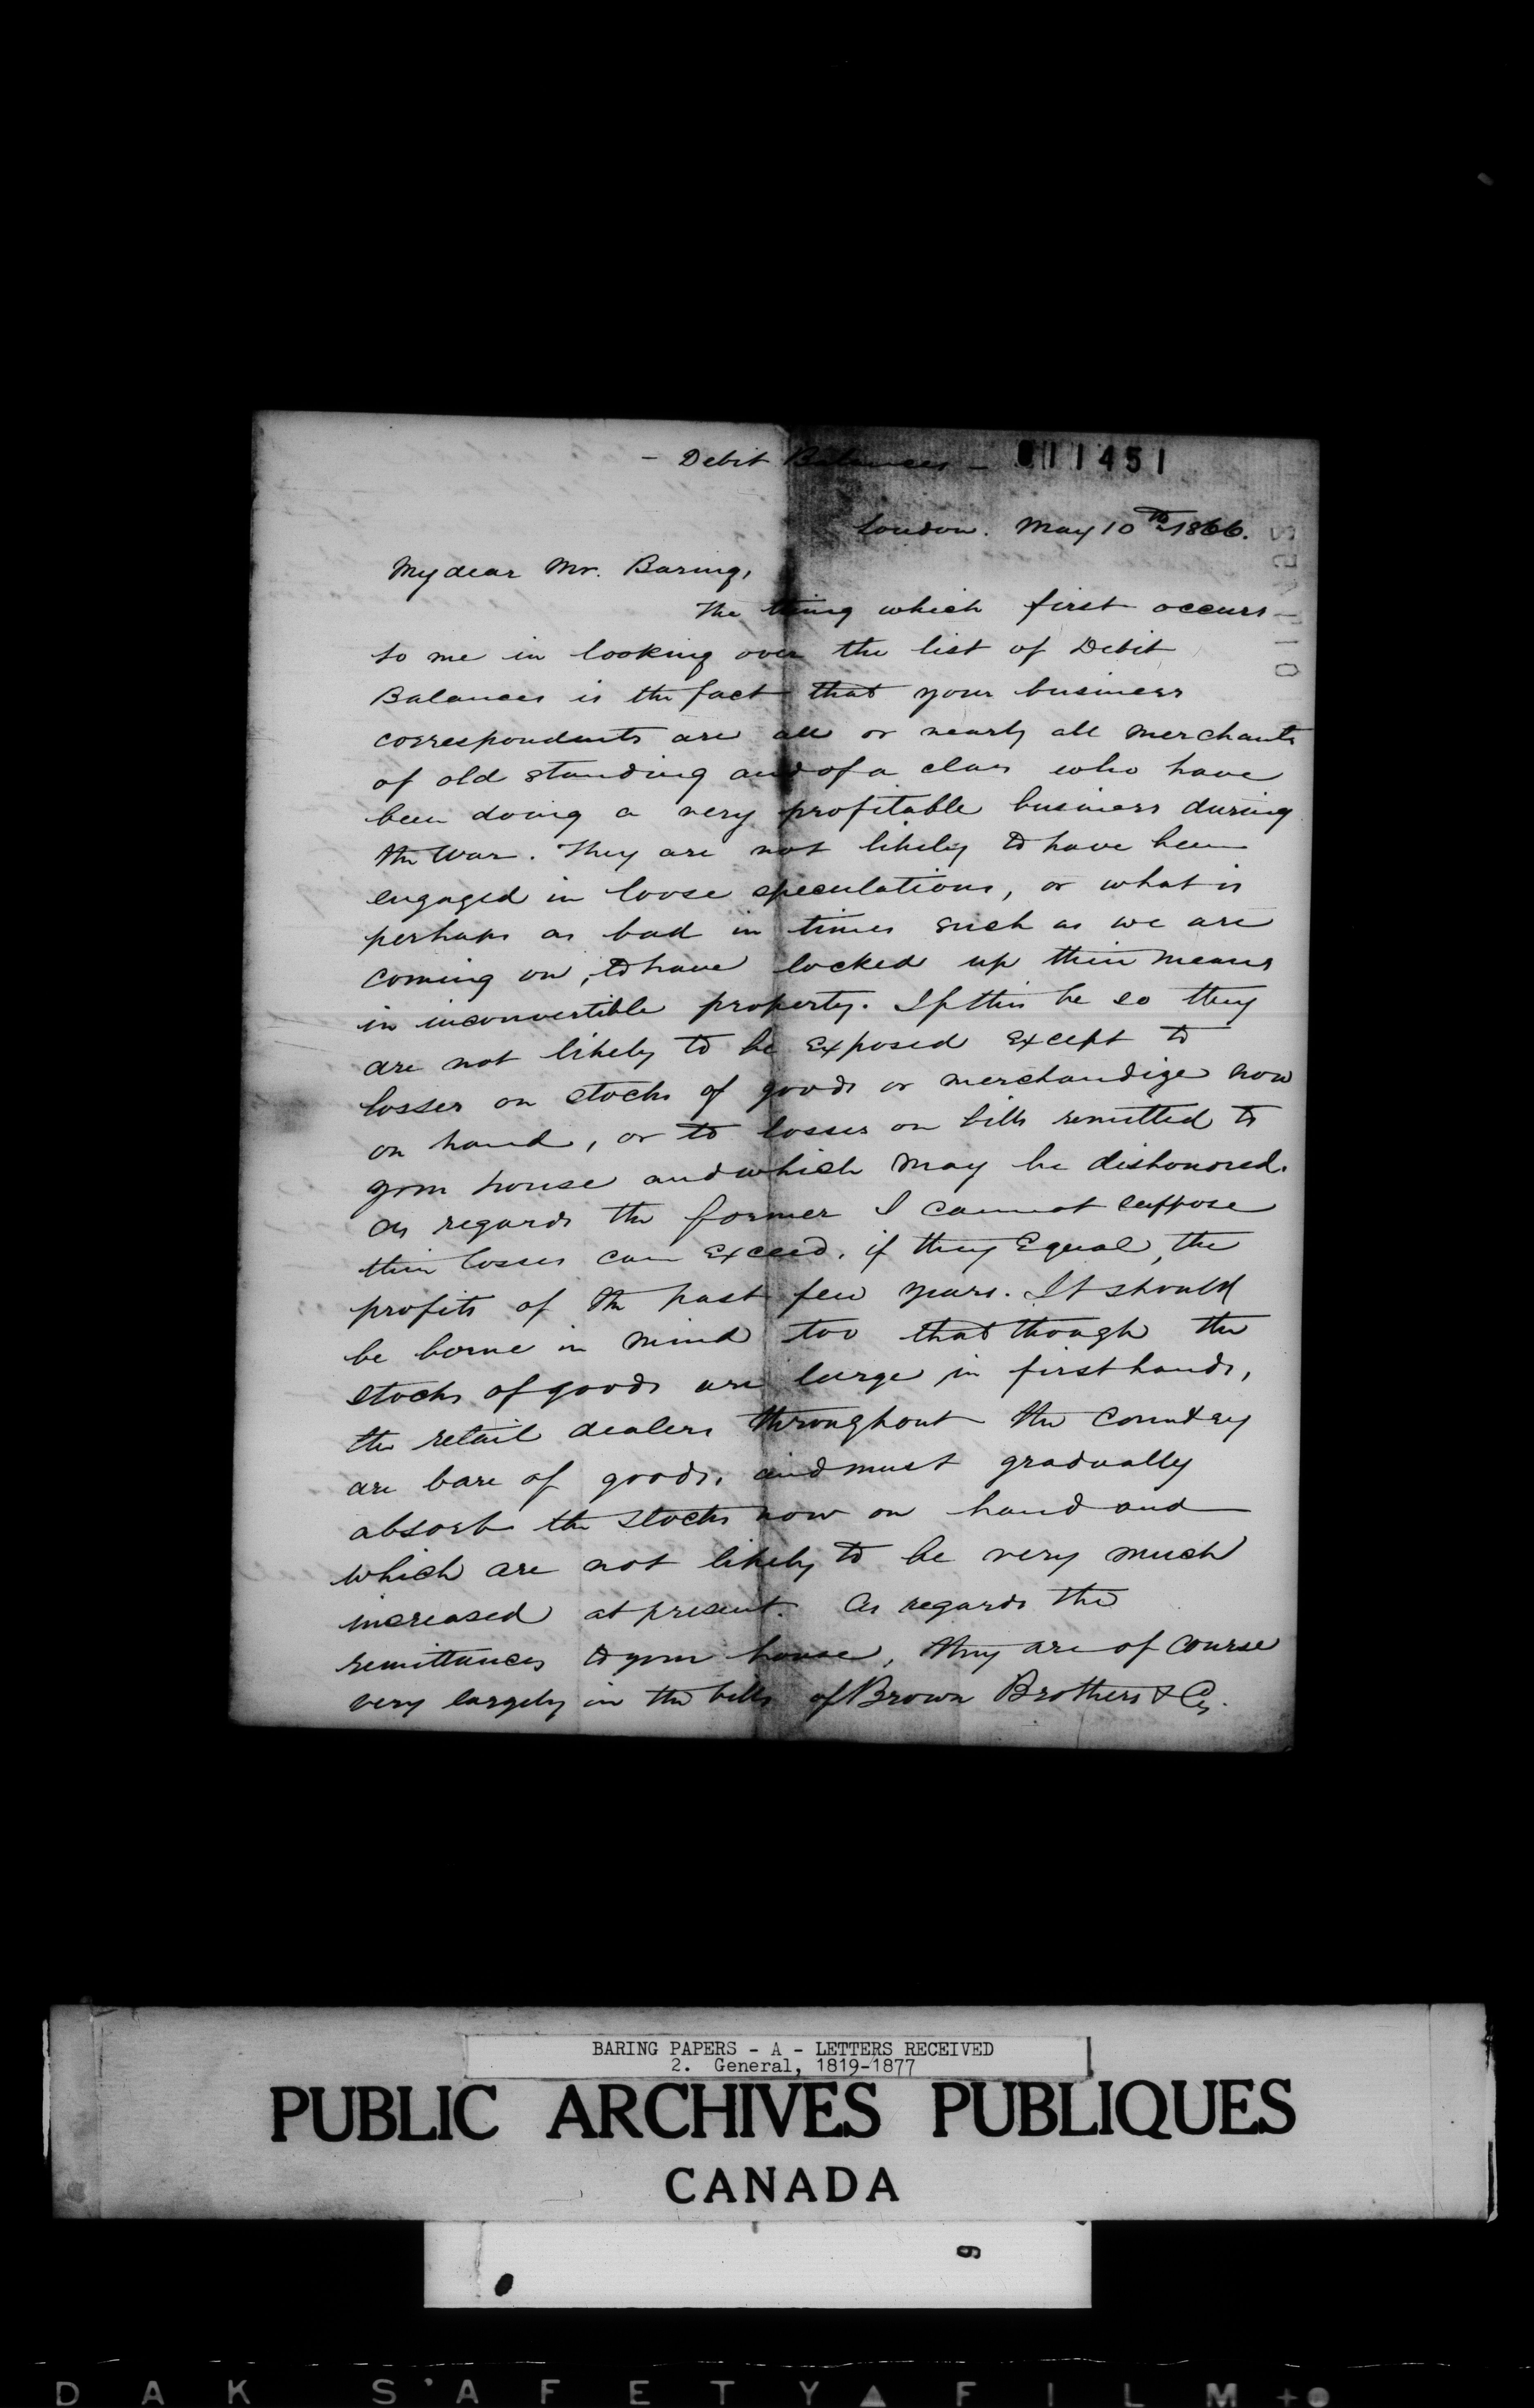 - Debit Balances -
011451
London. May 10th 1866.
My dear Mr. Baring,
The thing which first occurs
to me in looking over the list of Debit
Balances is the fact that your business
correspondents are all or nearly all merchants
of old standing and of a class who have
been doing a very profitable business during
the War. They are not likely to have been
engaged in loose speculations, or what is
perhaps as bad in times such as we are
coming on, to have locked up their means
in inconvertible property. If this be so they
are not likely to be Exposed Except to
losses on stocks of goods or merchandize now
on hand, or to losses on bills remitted to
your house and which may be dishonored.
As regards the former I cannot suppose
their losses can Exceed, if they Equal, the
profits of the past few years. It should
be borne in mind too that though the
stocks of goods are large in first hands,
the retail dealers throughout the Country
are bare of goods, and must gradually
absorb the stocks now on hand and
which are not likely to be very much
increased at present. As regards the
remittances to your house, they are of course
very largely in the bills of Brown Brothers & Co.
BARING PAPERS - A - LETTERS RECEIVED
2. General, 1819-1877
PUBLIC ARCHIVES PUBLIQUES
CANADA
9
DAK SAFETY FILM